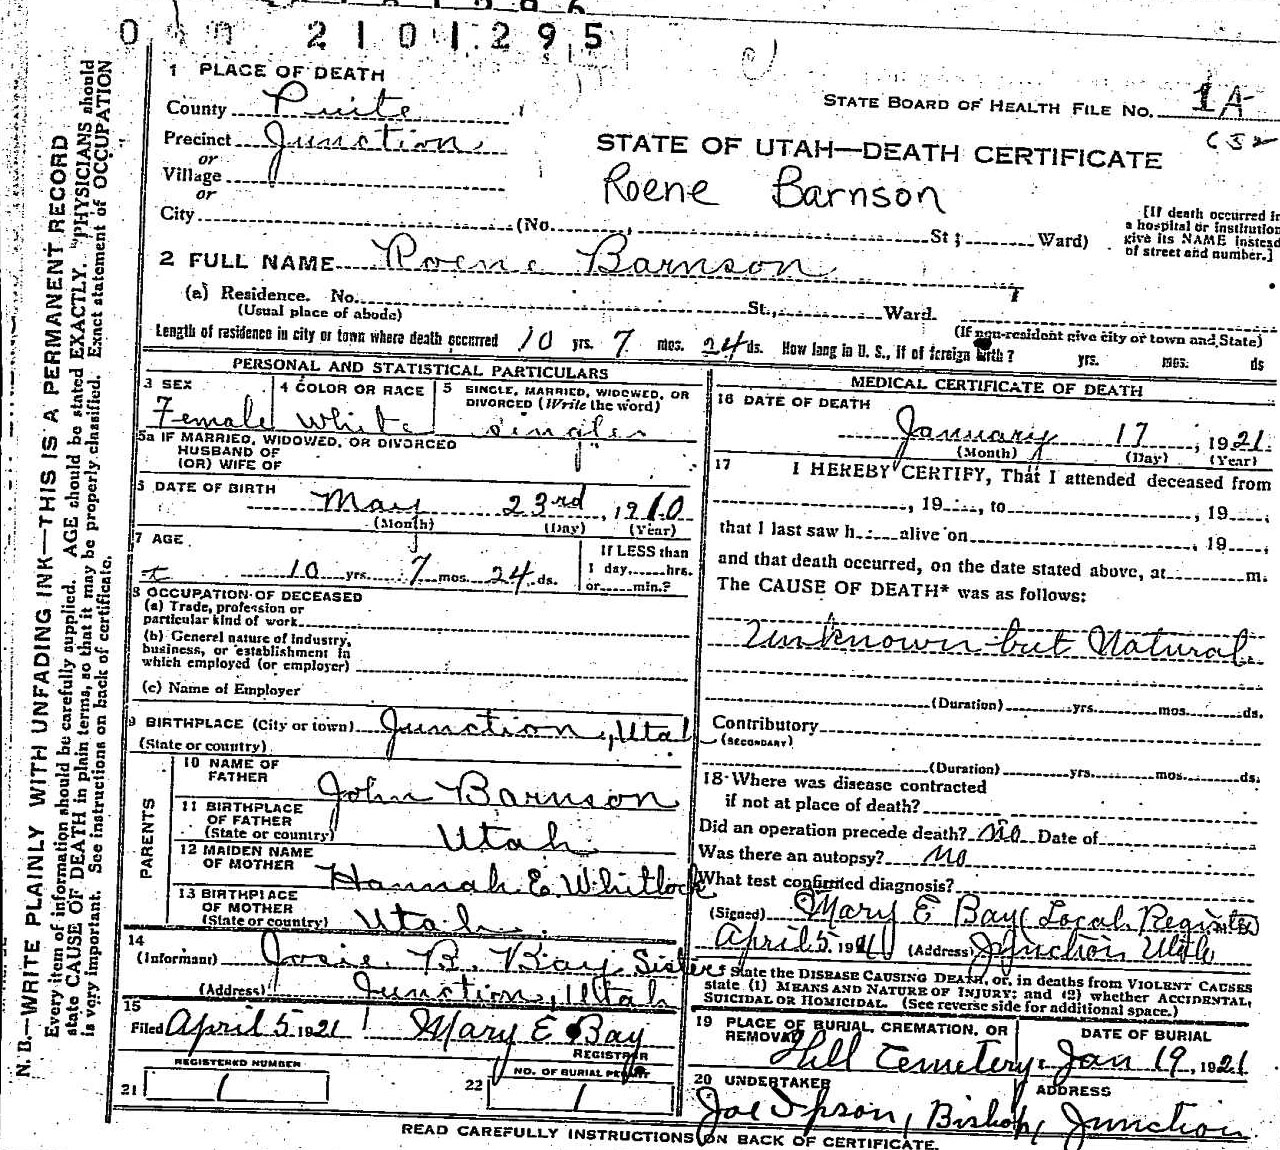 0 2101295
1 PLACE OF DEATH
County Puite
STATE BOARD OF HEALTH FILE NO. 1A
Precinct Junction
or
STATE OF UTAH—DEATH CERTIFICATE
Village
or
Roene Barnson
City (No. , St; Ward)
[If death occurred in
a hospital or institution
give its NAME instead
of street and number.]
2 FULL NAME Roene Barnson
(a) Residence. No. St., Ward.
(Usual place of abode)
(If non-resident give city or town and State)
Length of residence in city or town where death occurred 10 yrs. 7 mos. 24 ds. How long in U. S., if of foreign birth? yrs. mos. ds
PERSONAL AND STATISTICAL PARTICULARS
3 SEX
Female
4 COLOR OR RACE
White
5 SINGLE, MARRIED, WIDOWED, OR
DIVORCED (Write the word)
Single
5a IF MARRIED, WIDOWED, OR DIVORCED
HUSBAND OF
(OR) WIFE OF
6 DATE OF BIRTH
May 23rd, 1910
(Month) (Day) (Year)
7 AGE
10 yrs. 7 mos. 24 ds.
If LESS than
1 day, hrs.
or min.?
8 OCCUPATION OF DECEASED
(a) Trade, profession or
particular kind of work
(b) General nature of industry,
business, or establishment in
which employed (or employer)
(c) Name of Employer
9 BIRTHPLACE (City or town) Junction, Utah
(State or country)
PARENTS
10 NAME OF
FATHER
John Barnson
11 BIRTHPLACE
OF FATHER
(State or country)
Utah
12 MAIDEN NAME
OF MOTHER
Hannah E. Whitlock
13 BIRTHPLACE
OF MOTHER
(State or country)
Utah
14
(Informant) Josie B. Bay Sister
(Address) Junction, Utah
15
Filed April 5 1921 Mary E Bay
REGISTRAR
REGISTERED NUMBER
21 1
NO. OF BURIAL PERMIT
22 1
MEDICAL CERTIFICATE OF DEATH
16 DATE OF DEATH
January 17, 1921
(Month) (Day) (Year)
17 I HEREBY CERTIFY, That I attended deceased from
, 19 , to , 19
that I last saw h alive on , 19
and that death occurred, on the date stated above, at m.
The CAUSE OF DEATH* was as follows:
Unknown but Natural.
(Duration) yrs. mos. ds.
Contributory
(SECONDARY)
(Duration) yrs. mos. ds.
18 Where was disease contracted
if not at place of death?
Did an operation precede death? No Date of
Was there an autopsy? No
What test confirmed diagnosis?
(Signed) Mary E Bay (Local Register)
April 5, 1921 (Address) Junction Utah
State the DISEASE CAUSING DEATH, or, in deaths from VIOLENT CAUSES
state (1) MEANS AND NATURE OF INJURY; and (2) whether ACCIDENTAL,
SUICIDAL OR HOMICIDAL. (See reverse side for additional space.)
19 PLACE OF BURIAL, CREMATION, OR
REMOVAL
Hill Cemetery.
DATE OF BURIAL
Jan 19, 1921
20 UNDERTAKER
Joe Ipson, Bishop,
ADDRESS
Junction
READ CAREFULLY INSTRUCTIONS ON BACK OF CERTIFICATE.
N. B.—WRITE PLAINLY WITH UNFADING INK—THIS IS A PERMANENT RECORD
Every item of information should be carefully supplied. AGE should be stated EXACTLY. PHYSICIANS should
state CAUSE OF DEATH in plain terms, so that it may be properly classified. Exact statement of OCCUPATION
is very important. See instructions on back of certificate.